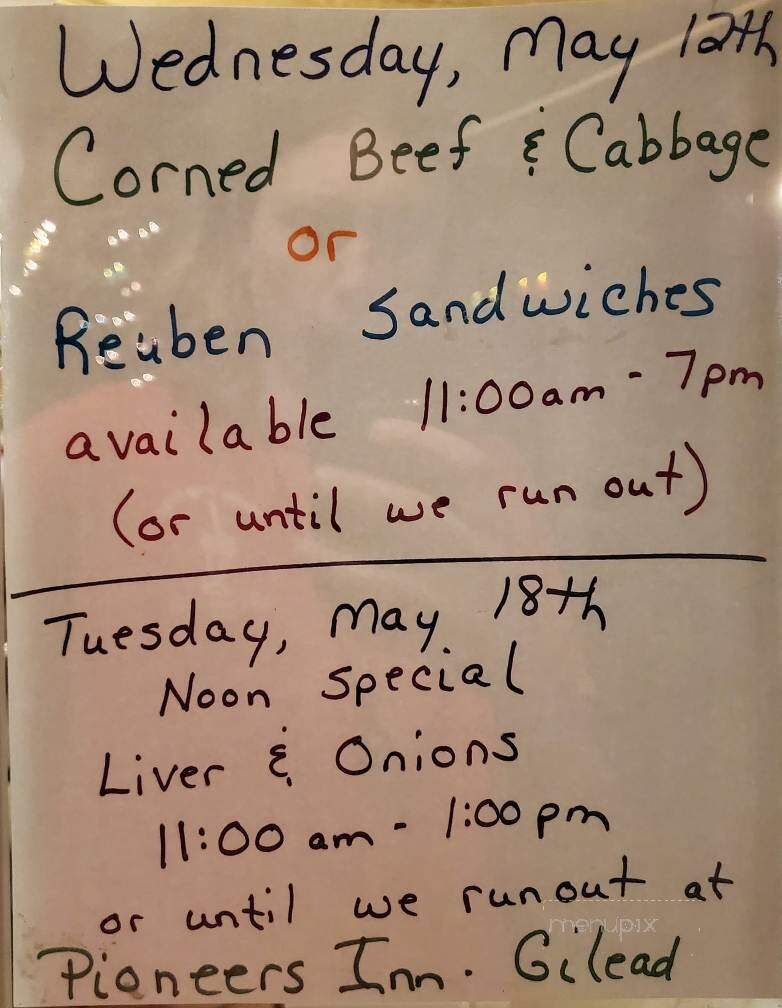 Wednesday, May 12th
Corned Beef & Cabbage
or
Reuben Sandwiches
available 11:00am - 7pm
(or until we run out)
Tuesday, May 18th
Noon Special
Liver & Onions
11:00 am - 1:00 pm
or until we run out at
menupix
Pioneers Inn. Gilead